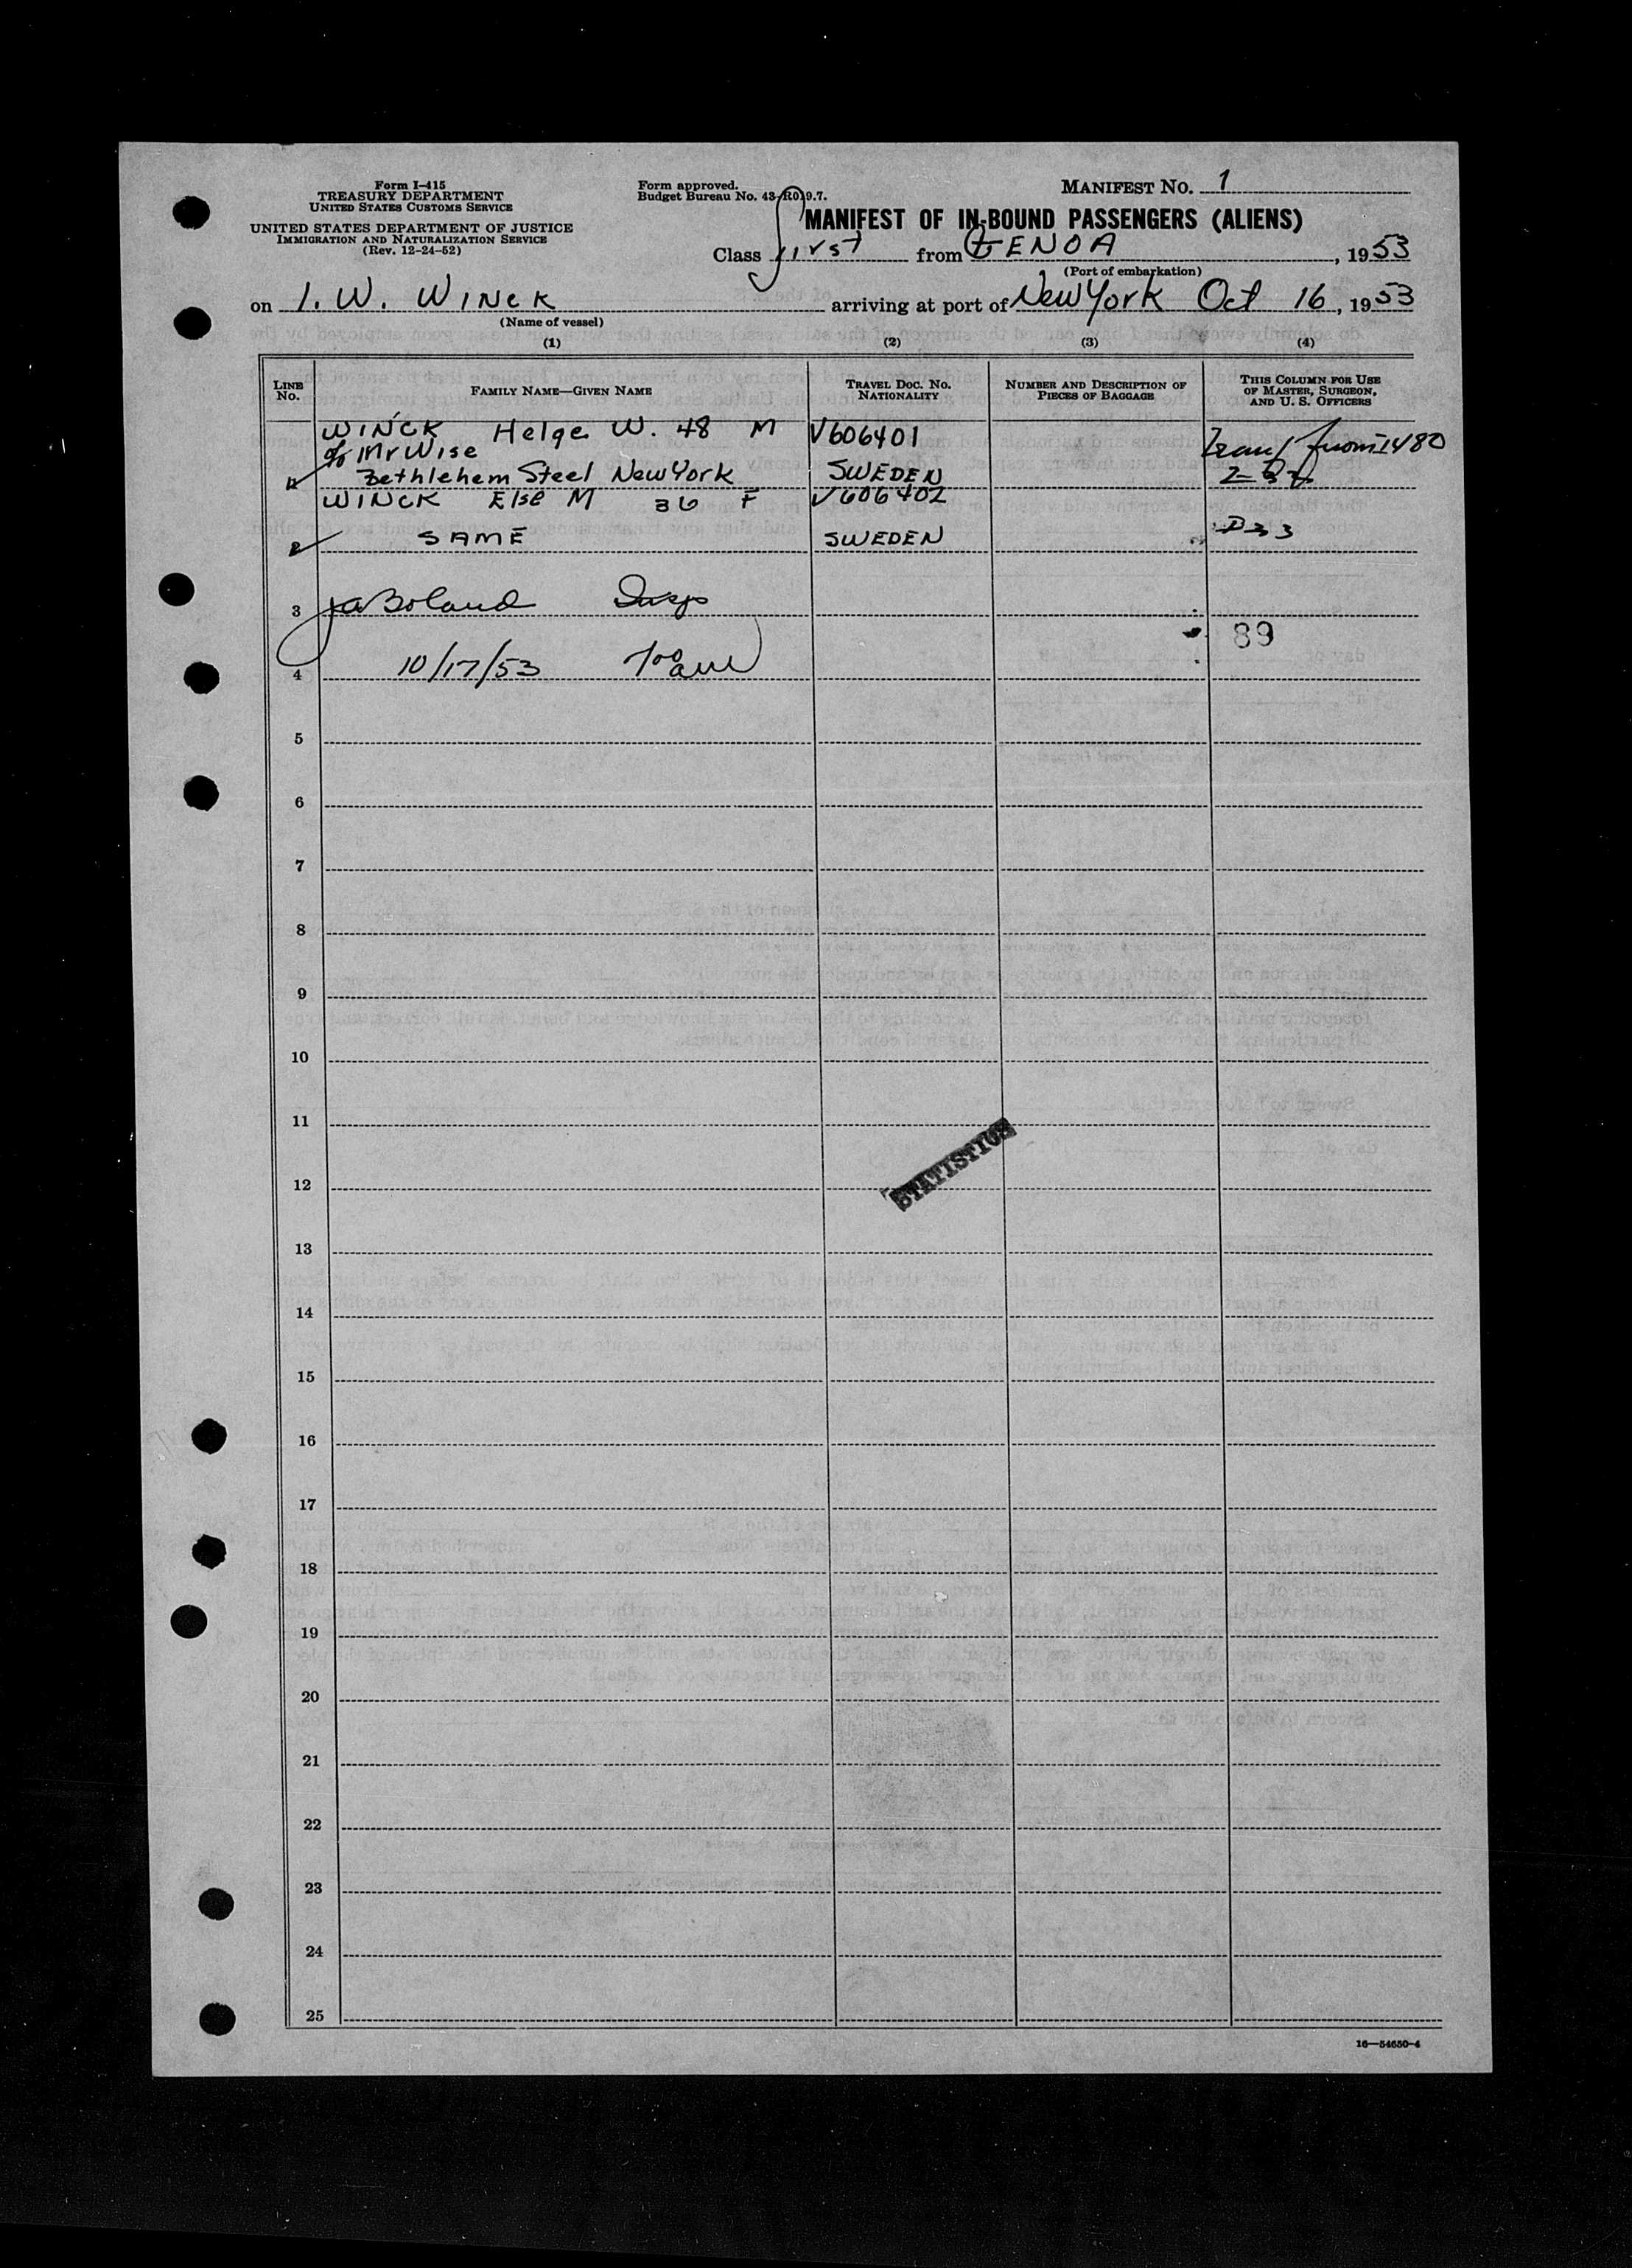 Form I-415
TREASURY DEPARTMENT
UNITED STATES CUSTOMS SERVICE
UNITED STATES DEPARTMENT OF JUSTICE
IMMIGRATION AND NATURALIZATION SERVICE
(Rev. 12-24-52)
Form approved.
Budget Bureau No. 43-R019.7.
MANIFEST NO. 1
MANIFEST OF IN-BOUND PASSENGERS (ALIENS)
Class first from GENOA, 1953
(Port of embarkation)
on I. W. WINCK arriving at port of New York Oct 16, 1953
(Name of vessel)
(1) (2) (3) (4)
LINE NO. FAMILY NAME—GIVEN NAME TRAVEL DOC. NO. NATIONALITY NUMBER AND DESCRIPTION OF PIECES OF BAGGAGE THIS COLUMN FOR USE OF MASTER, SURGEON, AND U. S. OFFICERS
WINCK Helge W. 48 M V606401
c/o Mr Wise from I480
Bethlehem Steel New York SWEDEN
WINCK Else M 36 F V606402
2 SAME SWEDEN D33
3 Boland Insp
89
4 10/17/53
5
6
7
8
9
10
11
STATISTICS
12
13
14
15
16
17
18
19
20
21
22
23
24
25
16—54650-4